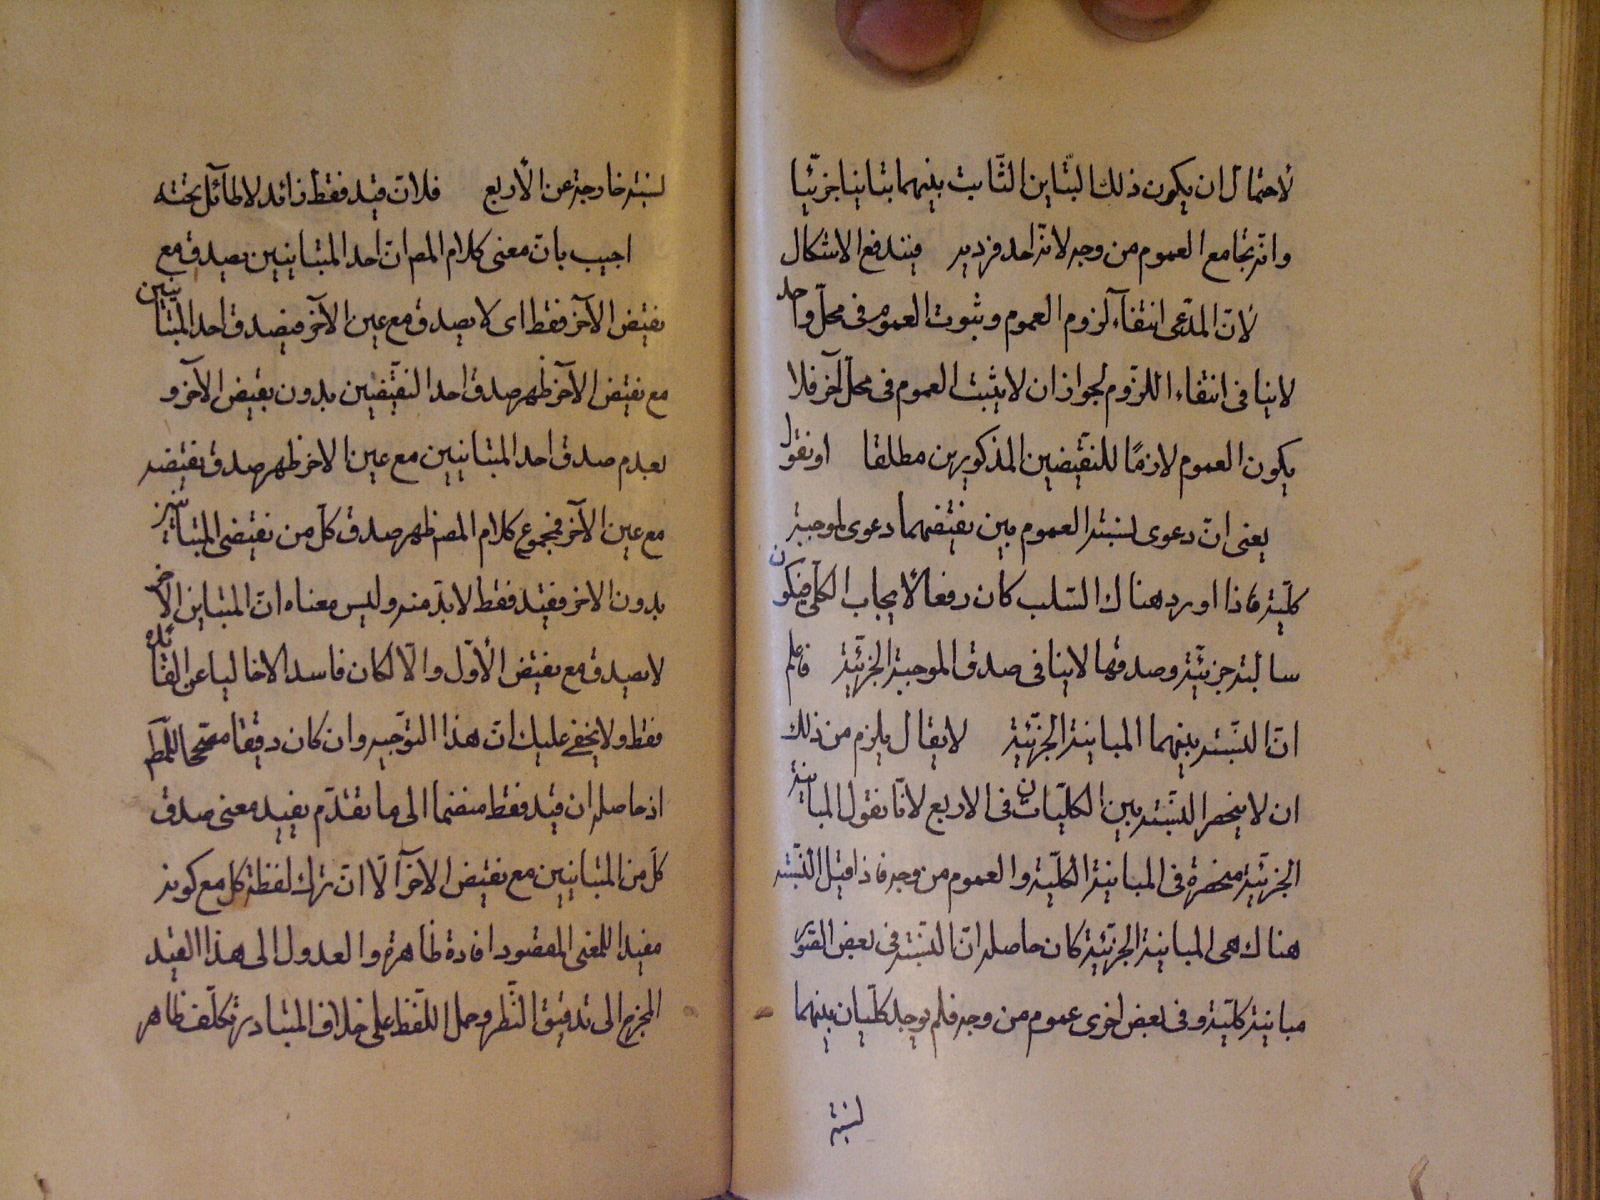 لاحتمال ان يكون ذلك التباين الثابت بينهما تباينا جزئيا
وانه تجامع العموم من وجه لانه احد فرديه فيندفع الاشكال
لان المدعى انتفاء لزوم العموم وثبوت العموم فى محل واحد
لاينافى انتفاء اللزوم لجواز ان لايثبت العموم فى محل آخر فلا
يكون العموم لازمًا للنقيضين المذكورين مطلقا او نقول
يعنى ان دعوى نسبة العموم بين نقيضهما دعوى لموجبة
كلية فاذا اورد هناك السلب كان رفعا لايجاب الكلى فيكون
سالبة جزئية وصدقها لاينافى صدق الموجبة الجزئية فاعلم
ان النسبة بينهما المباينة الجزئية لايقال يلزم من ذلك
ان لاينحصر النسبة بين الكليات فى الاربع لانا نقول المباينة
الجزئية منحصرة فى المباينة الكلية والعموم من وجه فاذا قيل النسبة
هناك هى المباينة الجزئية كان حاصله ان النسبة فى بعض الصور
مباينة كلية وفى بعض اخرى عموم من وجه فلم يوجد كليان بينهما
نسبة
نسبة خارجة عن الأربع فلان قيد فقط زائد لاطائل تحته
اجيب بان معنى كلام المص ان احد المتباينين يصدق مع
نقيض الآخر فقط اى لا يصدق مع عين الآخر فيصدق احد المتباينين
مع نقيض الآخر ظهر صدق احد النقيضين بدون نقيض الآخر و
بعدم صدق احد المتباينين مع عين الاخر ظهر صدق نقيضه
مع عين الآخر فمجموع كلام المص ظهر صدق كل من نقيضى المتباينين
بدون الاخر فقيد فقط لابد منه وليس معناه ان المتباين الآخر
لايصدق مع نقيض الأول والا لكان فاسدا لاخاليا عن الفائدة
فقط ولا يخفى عليك ان هذا التوجيه وان كان دقيقا مصححا للمط
اذ حاصله ان قيد فقط منضما الى ما تقدم يفيد معنى صدق
كل من المتباينين مع نقيض الآخر الا ان ترك لفظة كل مع كونه
مفيدا للمعنى المقصود افادة ظاهرة والعدول الى هذا القيد
المخرج الى تدقيق النظر وحمل اللفظ على خلاف المتبادر تكلف ظاهر